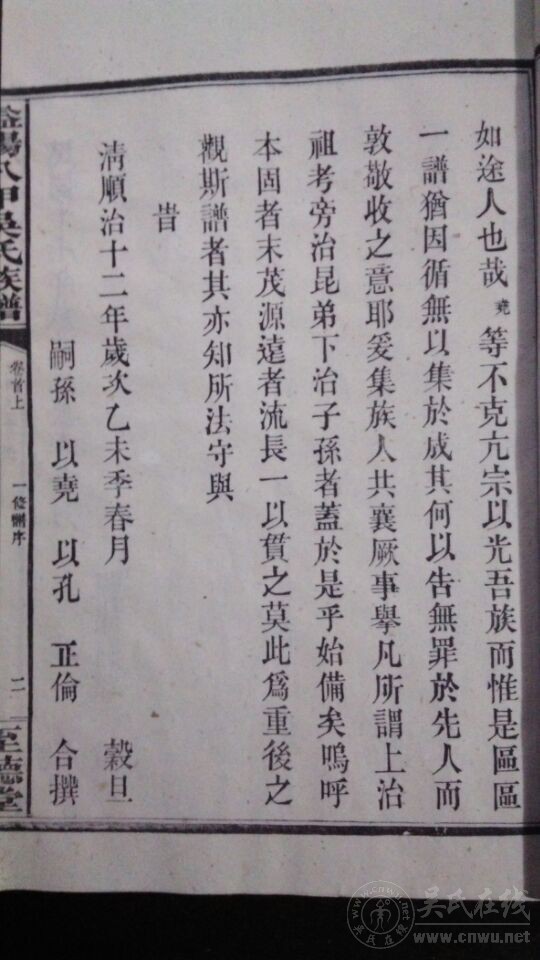 如途人也哉堯等不克亢宗以光吾族而惟是區區
一譜猶因循無以集於成其何以告無罪於先人而
敦敬收之意耶爰集族人共襄厥事舉凡所謂上治
祖考旁治昆弟下治子孫者蓋於是乎始備矣嗚呼
本固者末茂源遠者流長一以貫之莫此為重後之
觀斯譜者其亦知所法守與
旹
清順治十二年歲次乙未季春月 穀旦
嗣孫 以堯 以孔 正倫 合撰
益陽八甲吳氏族譜 卷首上 一修譜序 二 至德堂
吴氏在线
www.cnwu.net